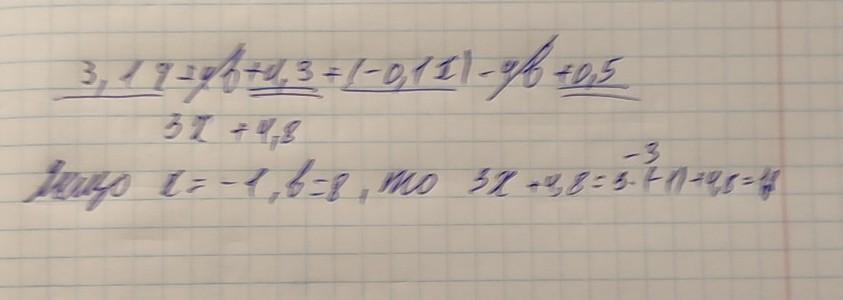 3,1x + 9b + 4,3 + (-0,1x) - 9b + 0,5
3x + 4,8
Якщо x = -1, b = 8, то 3x + 4,8 = 3·(-1) + 4,8 =
-3